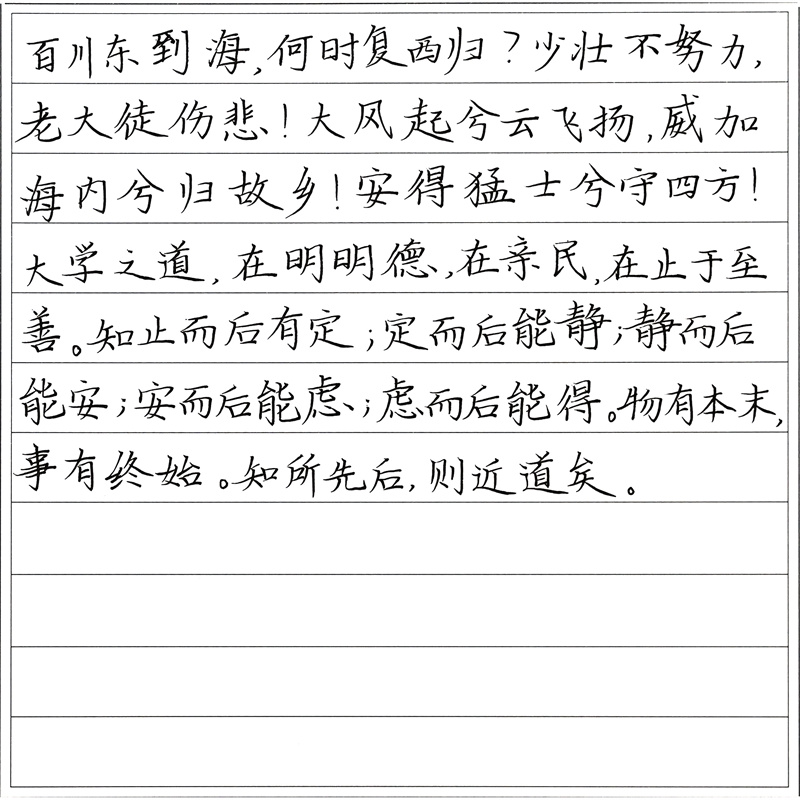 百川东到海,何时复西归?少壮不努力,
老大徒伤悲!大风起兮云飞扬,威加
海内兮归故乡!安得猛士兮守四方!
大学之道,在明明德,在亲民,在止于至
善。知止而后有定;定而后能静;静而后
能安;安而后能虑;虑而后能得。物有本末,
事有终始。知所先后,则近道矣。